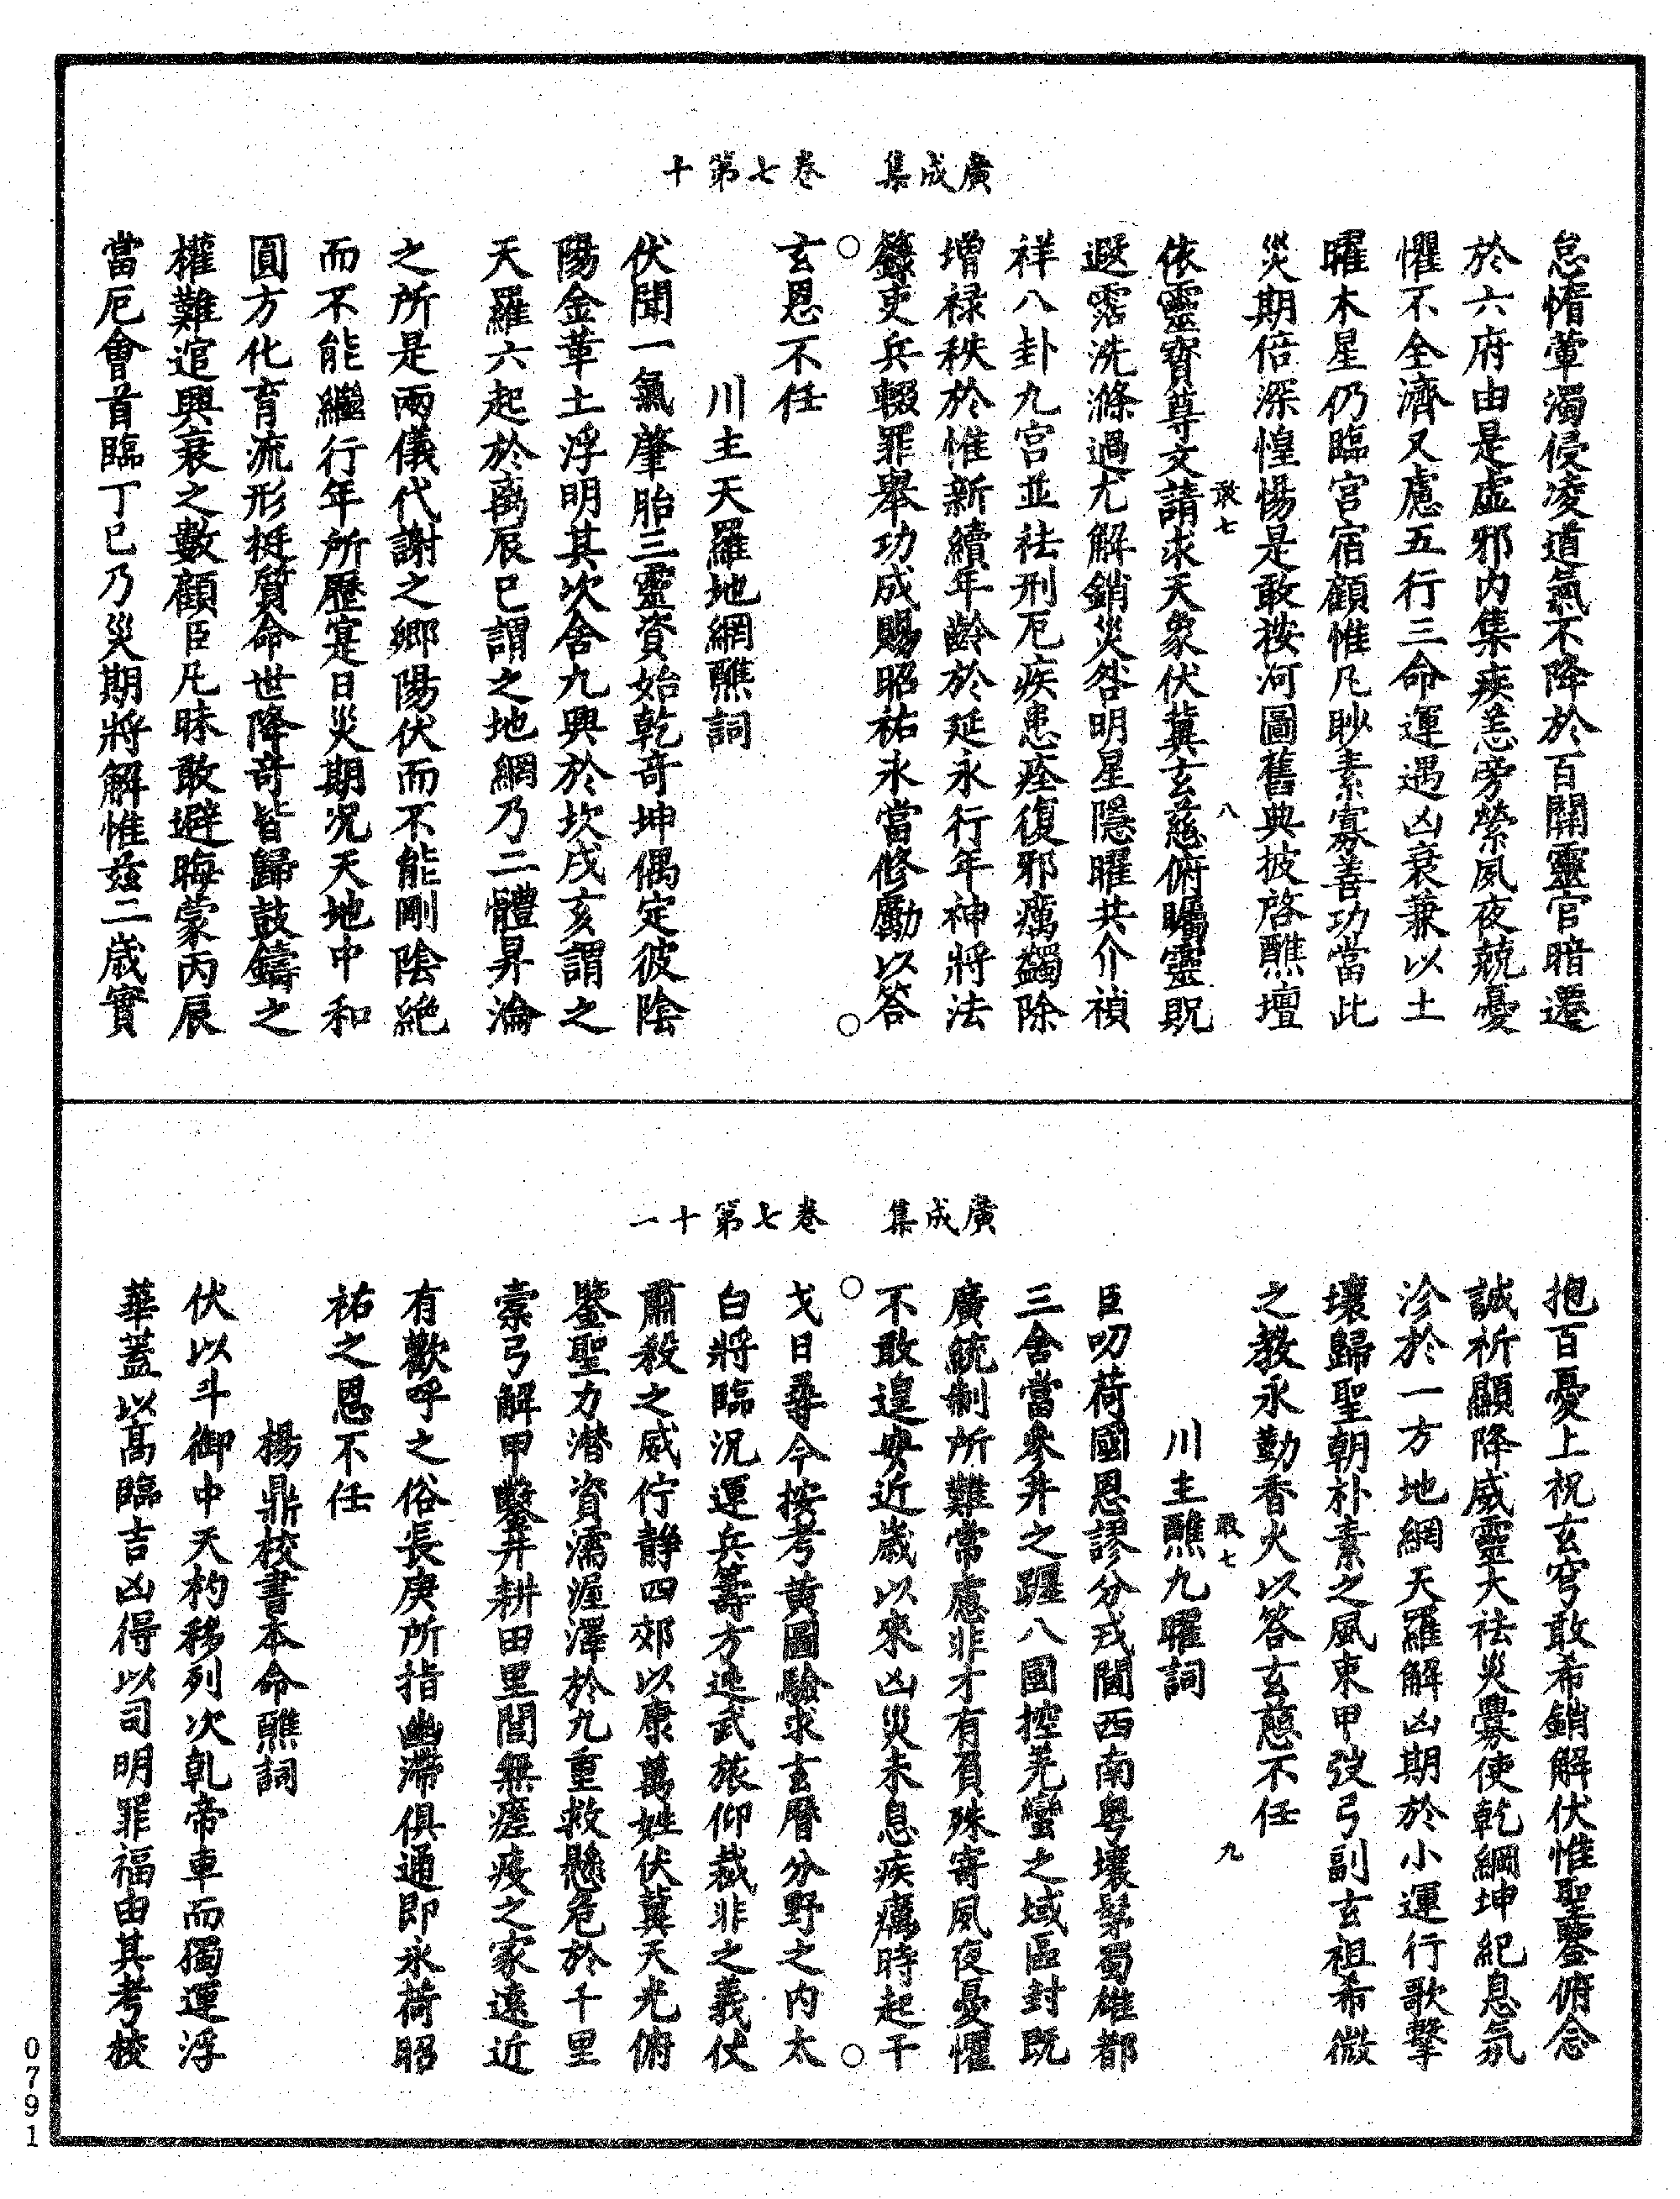 廣成集　卷七第十
怠惰葷濁侵凌道氣不降於百關靈官暗遷
於六府由是虛邪內集疾恙旁縈夙夜兢憂
懼不全濟又慮五行三命運遇凶衰兼以土
曜木星仍臨宮宿顧惟凡眇素寡善功當此
災期倍深惶惕是敢按河圖舊典披啓醮壇
敢七　八
依靈寶尊文請求天象伏冀玄慈俯矚靈貺
遐霑洗滌過尤解銷災咎明星隱曜共介禎
祥八卦九宮並祛刑厄疾患痊復邪癘蠲除
增禄秩於惟新續年齡於延永行年神將法
籙吏兵輟罪舉功成賜昭祐永當修勵以答
玄恩不任
川主天羅地網醮詞
伏聞一氣肇胎三靈資始乾奇坤偶定彼陰
陽金革土浮明其次舍九興於坎戌亥謂之
天羅六起於离辰巳謂之地網乃二體昇淪
之所是兩儀代謝之鄉陽伏而不能剛陰絕
而不能繼行年所歷寔曰災期況天地中和
圓方化育流形挺質命世降奇皆歸鼓鑄之
權難逭興衰之數顧臣凡昧敢避晦蒙丙辰
當厄會首臨丁巳乃災期將解惟茲二歲實
廣成集　卷七第十一
抱百憂上祝玄穹敢希銷解伏惟聖鑒俯念
誠祈顯降威靈大祛災釁使乾綱坤紀息氛
沴於一方地網天羅解凶期於小運行歌擊
壤歸聖朝朴素之風束甲弢弓副玄祖希微
之教永勤香火以答玄慈不任
敢七　九
川主醮九曜詞
臣叨荷國恩謬分戎閫西南粤壤髳蜀雄都
三舍當參井之躔八國控羌蠻之域區封既
廣統制所難常慮非才有負殊寄夙夜憂懼
不敢遑安近歲以來凶災未息疾癘時起干
戈日尋今按考黃圖驗求玄曆分野之內太
白將臨況運兵籌方延武旅仰裁非之義伏
肅殺之威佇靜四郊以康萬姓伏冀天光俯
鑒聖力潛資濡渥澤於九重救懸危於千里
櫜弓解甲鑿井耕田里閭無瘥疫之家遠近
有歡呼之俗長庚所指幽滯俱通即永荷昭
祐之恩不任
楊鼎校書本命醮詞
伏以斗御中天杓移列次乾帝車而獨運浮
華蓋以高臨吉凶得以司明罪福由其考校
0791